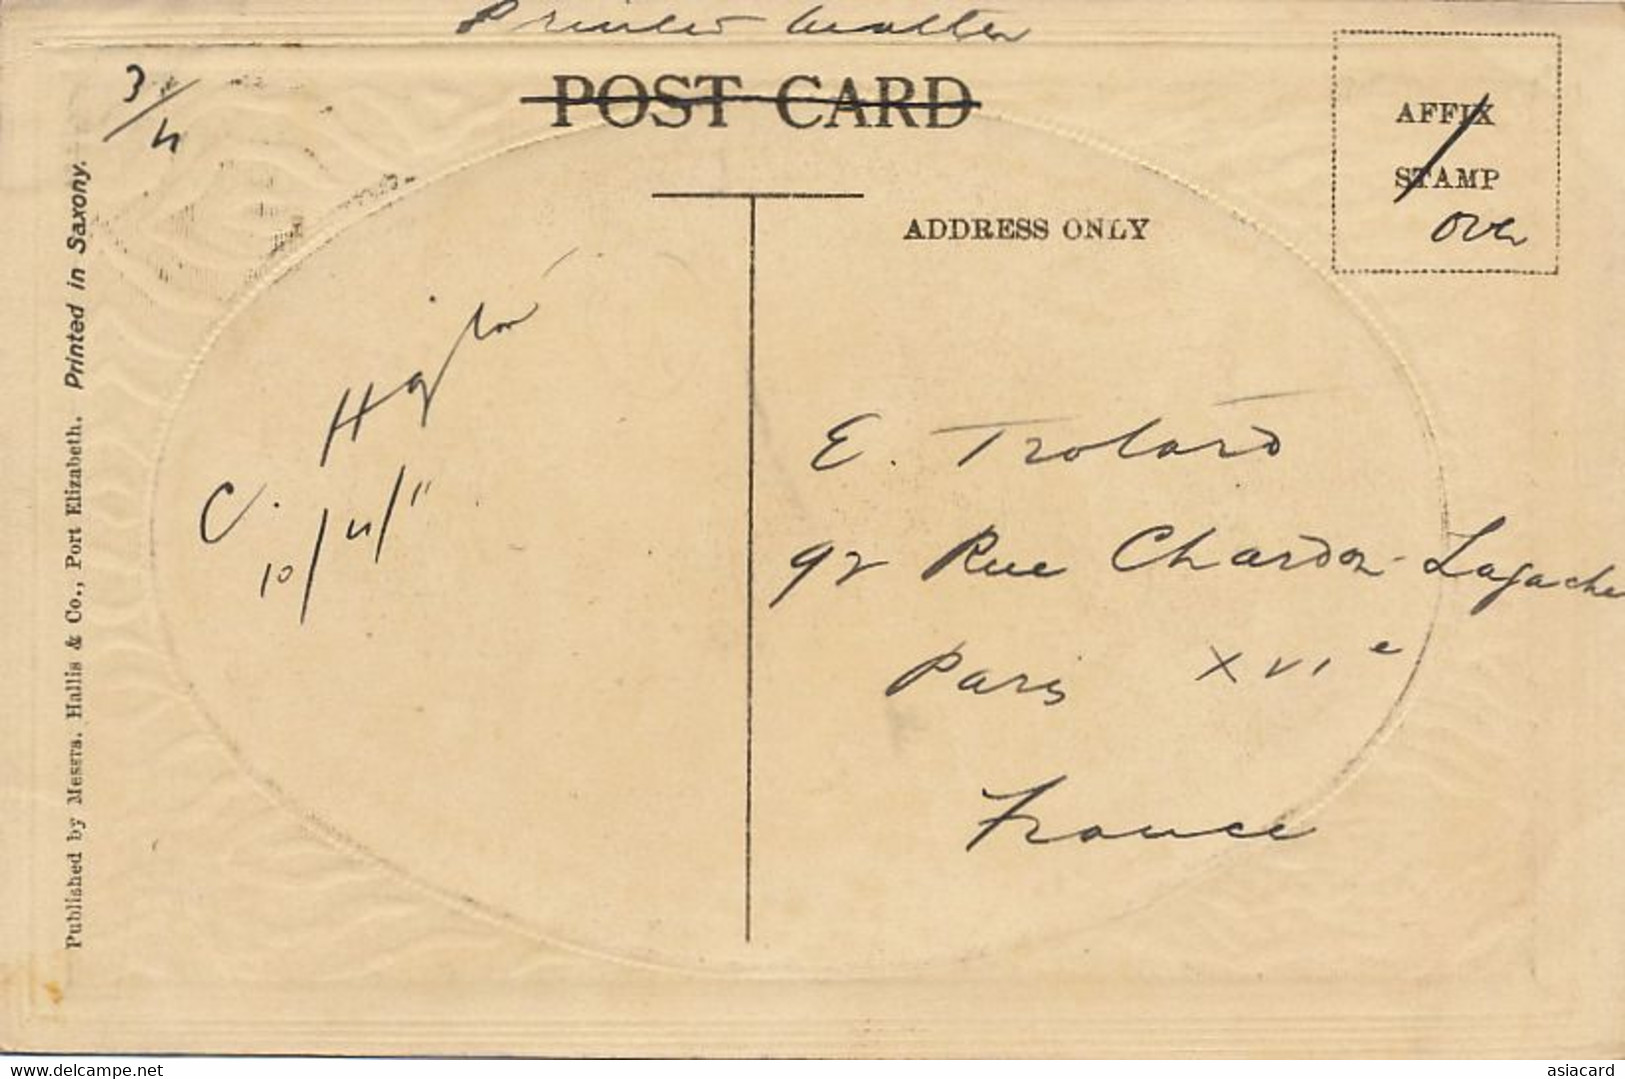 Printed Matter
3/4
POST CARD
AFFIX
STAMP
over
ADDRESS ONLY
Published by Messrs. Hallis & Co., Port Elizabeth. Printed in Saxony.
C.
10/4/11
E. Trotard
92 Rue Chardon-Lagache
Paris XVIe
France
www.delcampe.net
asiacard